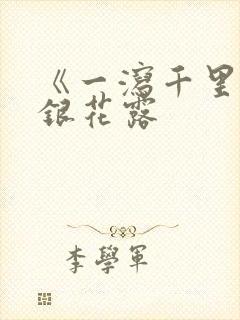 《一瀉千里
銀花露
李學軍